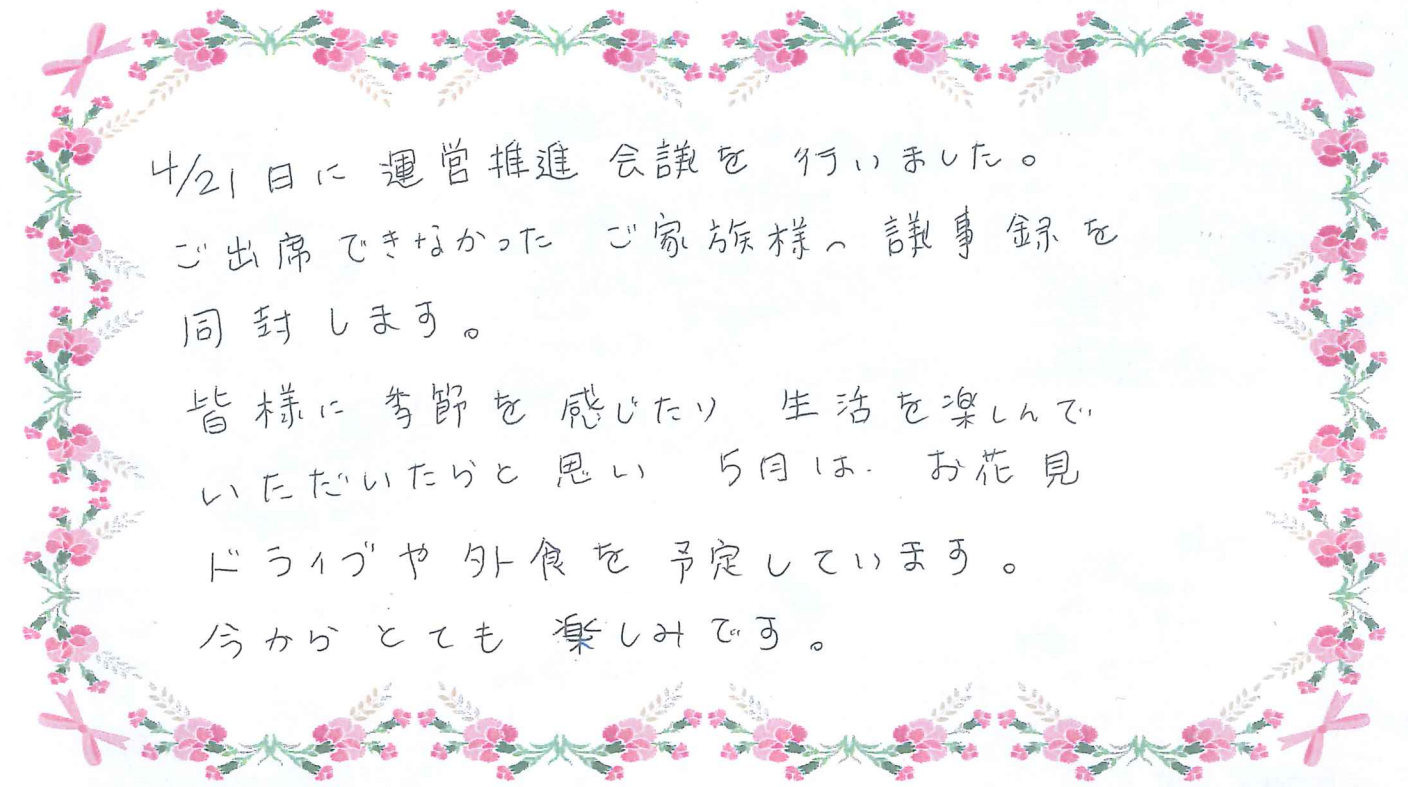 4/21日に運営推進会議を行いました。
ご出席できなかったご家族様へ議事録を
同封します。
皆様に季節を感じたり 生活を楽しんで
いただいたらと思い 5月は、お花見
ドライブや外食を予定しています。
今からとても楽しみです。